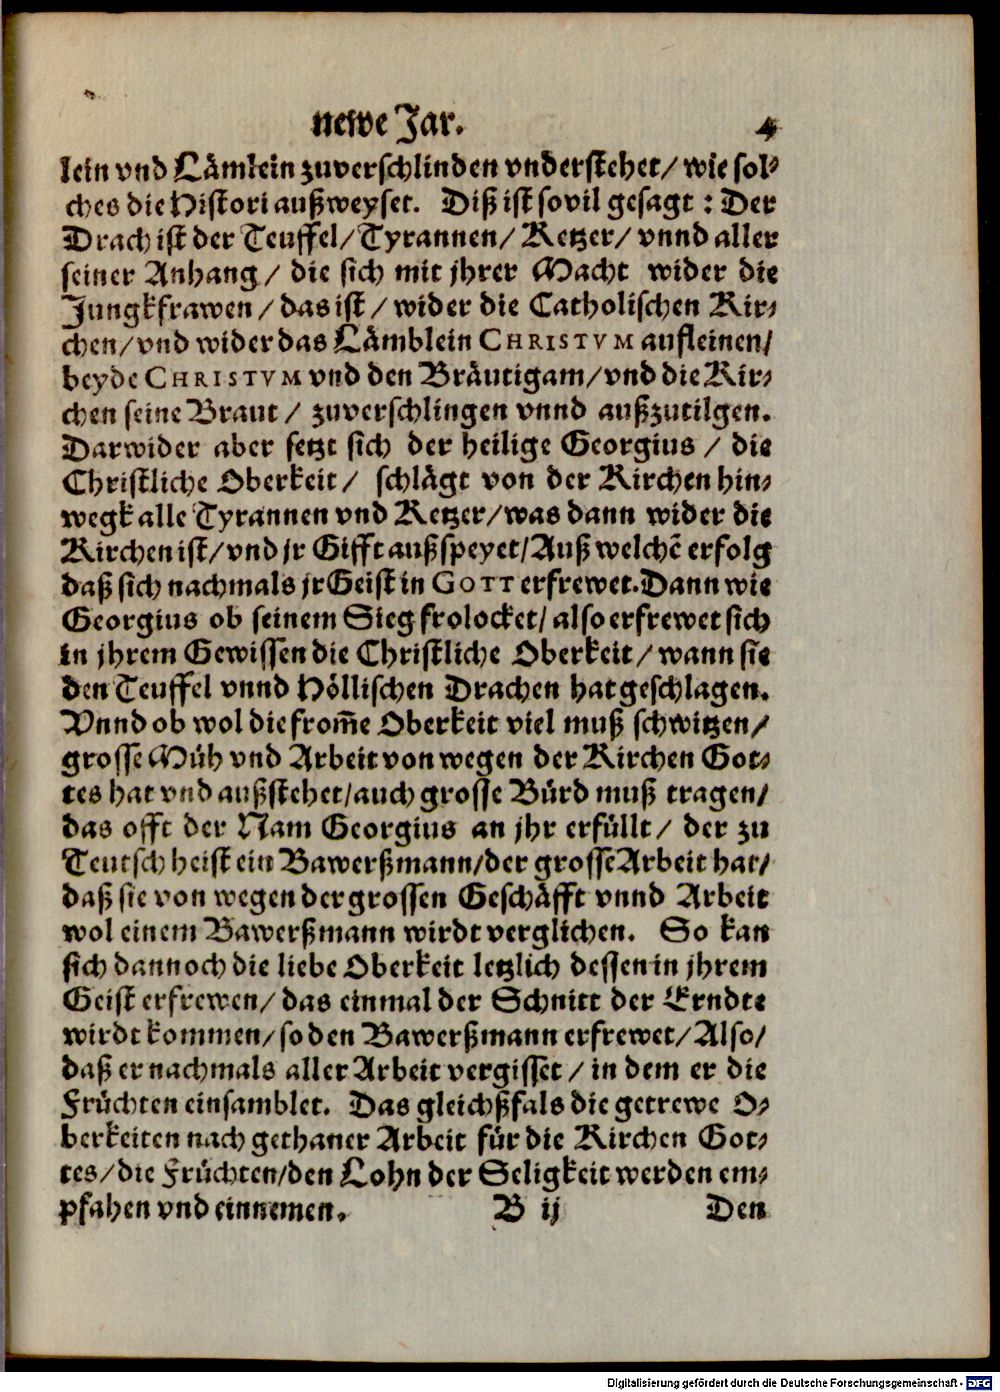 newe Jar. 4
lein vnd Lämlein zuverschlinden vnderstehet/ wie sol⸗
ches die Histori außweyset. Diß ist sovil gesagt : Der
Drach ist der Teuffel/ Tyrannen/ Ketzer/ vnnd aller
seiner Anhang/ die sich mit jhrer Macht wider die
Jungkfrawen/ das ist/ wider die Catholischen Kir⸗
chen/ vnd wider das Lämblein CHRISTVM aufleinen/
beyde CHRISTVM vnd den Bräutigam/ vnd die Kir⸗
chen seine Braut/ zuverschlingen vnnd außzutilgen.
Darwider aber setzt sich der heilige Georgius/ die
Christliche Oberkeit/ schlägt von der Kirchen hin⸗
wegk alle Tyrannen vnd Ketzer/ was dann wider die
Kirchen ist/ vnd jr Gifft außspeyet/ Auß welchē erfolg
daß sich nachmals jr Geist in GOTT erfrewet. Dann wie
Georgius ob seinem Sieg frolocket/ also erfrewet sich
in jhrem Gewissen die Christliche Oberkeit/ wann sie
den Teuffel vnnd Höllischen Drachen hat geschlagen.
Vnnd ob wol die from̄e Oberkeit viel muß schwitzen/
grosse Müh vnd Arbeit von wegen der Kirchen Got⸗
tes hat vnd außstehet/ auch grosse Bürd muß tragen/
das offt der Nam Georgius an jhr erfüllt/ der zu
Teutsch heist ein Bawerßmann/ der grosse Arbeit hat/
daß sie von wegen der grossen Geschäfft vnnd Arbeit
wol einem Bawerßmann wirdt verglichen. So kan
sich dannoch die liebe Oberkeit letzlich dessen in jhrem
Geist erfrewen/ das einmal der Schnitt der Erndte
wirdt kommen/ so den Bawerßmann erfrewet/ Also/
daß er nachmals aller Arbeit vergisset/ in dem er die
Früchten einsamblet. Das gleichßfals die getrewe O⸗
berkeiten nach gethaner Arbeit für die Kirchen Got⸗
tes/ die Früchten/ den Lohn der Seligkeit werden em⸗
pfahen vnd einnemen. B ij Den
Digitalisierung gefördert durch die Deutsche Forschungsgemeinschaft - DFG